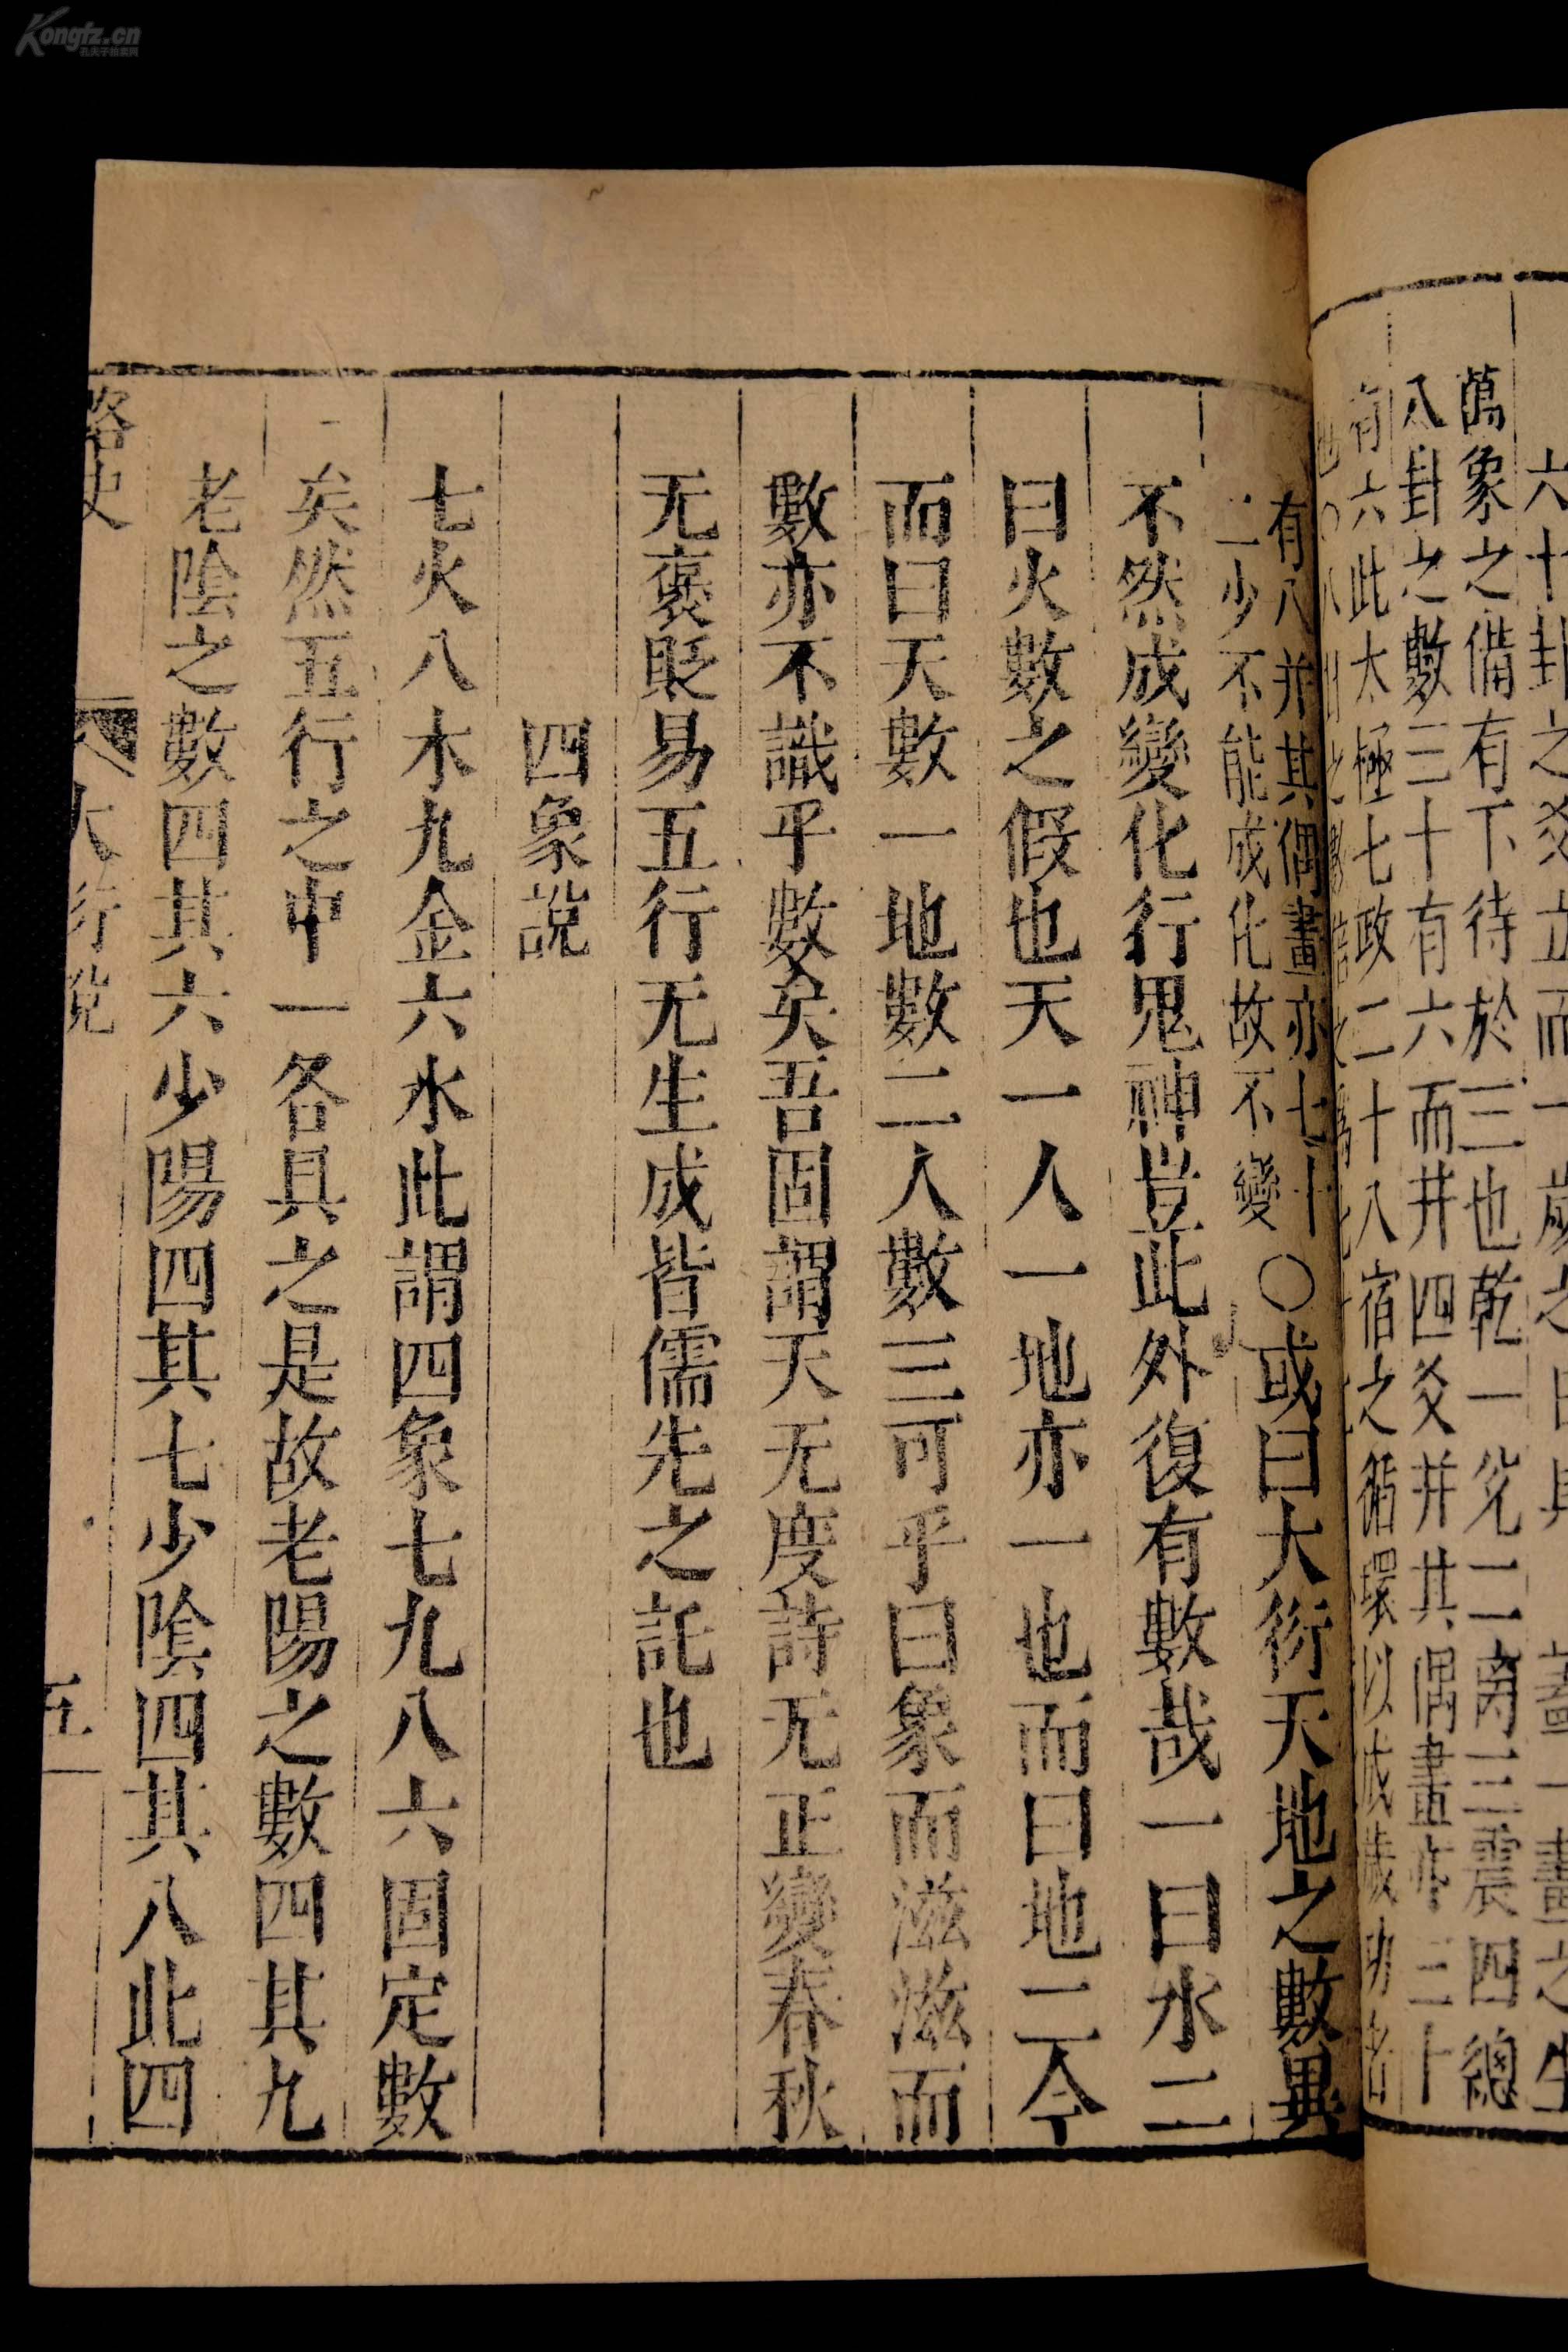 六十卦之爻立而一歲之日具
萬象之備有下待於三也乾一兌二離三震四總
八卦之數三十有六而井四爻并其偶畫亦三十
有六此太極七政二十八宿之循環以成歲功者
有八并其偶畫亦七十
二少不能成化故不變
○或曰大衍天地之數異
不然成變化行鬼神豈此外復有數哉一曰水二
曰火數之假也天一人一地亦一也而曰地二今
而曰天數一地數二人數三可乎曰象而滋滋而
數亦不識乎數矣吾固謂天无度詩无正變春秋
无褒貶易五行无生成皆儒先之託也
四象說
七火八木九金六水此謂四象七九八六固定數
矣然五行之中一各具之是故老陽之數四其九
老陰之數四其六少陽四其七少陰四其八此四
路史
大衍說
五
Kongfz.cn
孔夫子旧书网